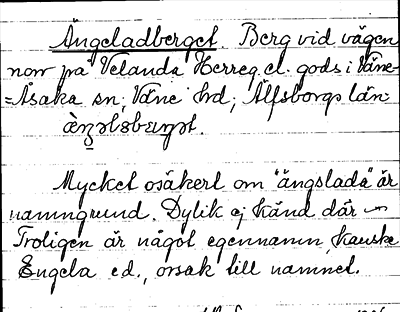 Ängeladberget. Berg vid vägen
norr på Velanda Herreg. el. gods i Väne-
=Åsaka sn, Väne hd; Älfsborgs län.
Mycket osäkert om "ängslada" är
namngrund. Dylik ej känd där
Troligen är något egennamn, kanske
Engela ed., orsak till namnet.